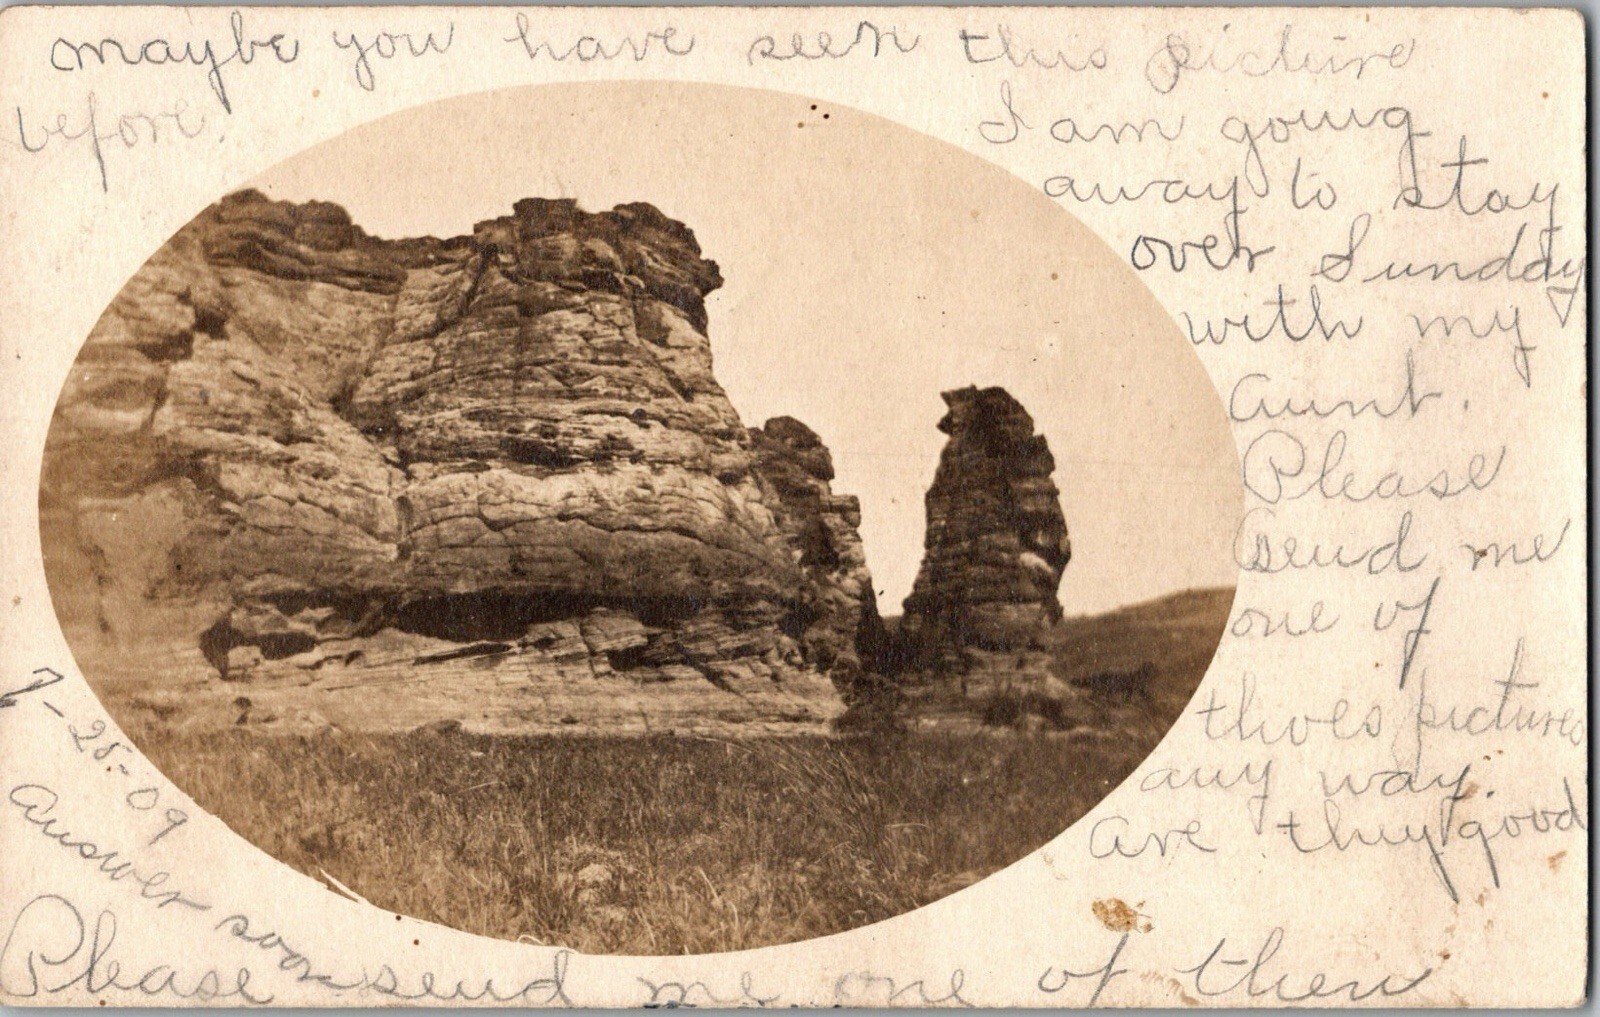 maybe you have seen this picture
before.
I am going
away to stay
over Sunday
with my
aunt.
Please
send me
one of
thoes pictures
any way.
are they good
7-25-09
answer soon
Please send me one of then